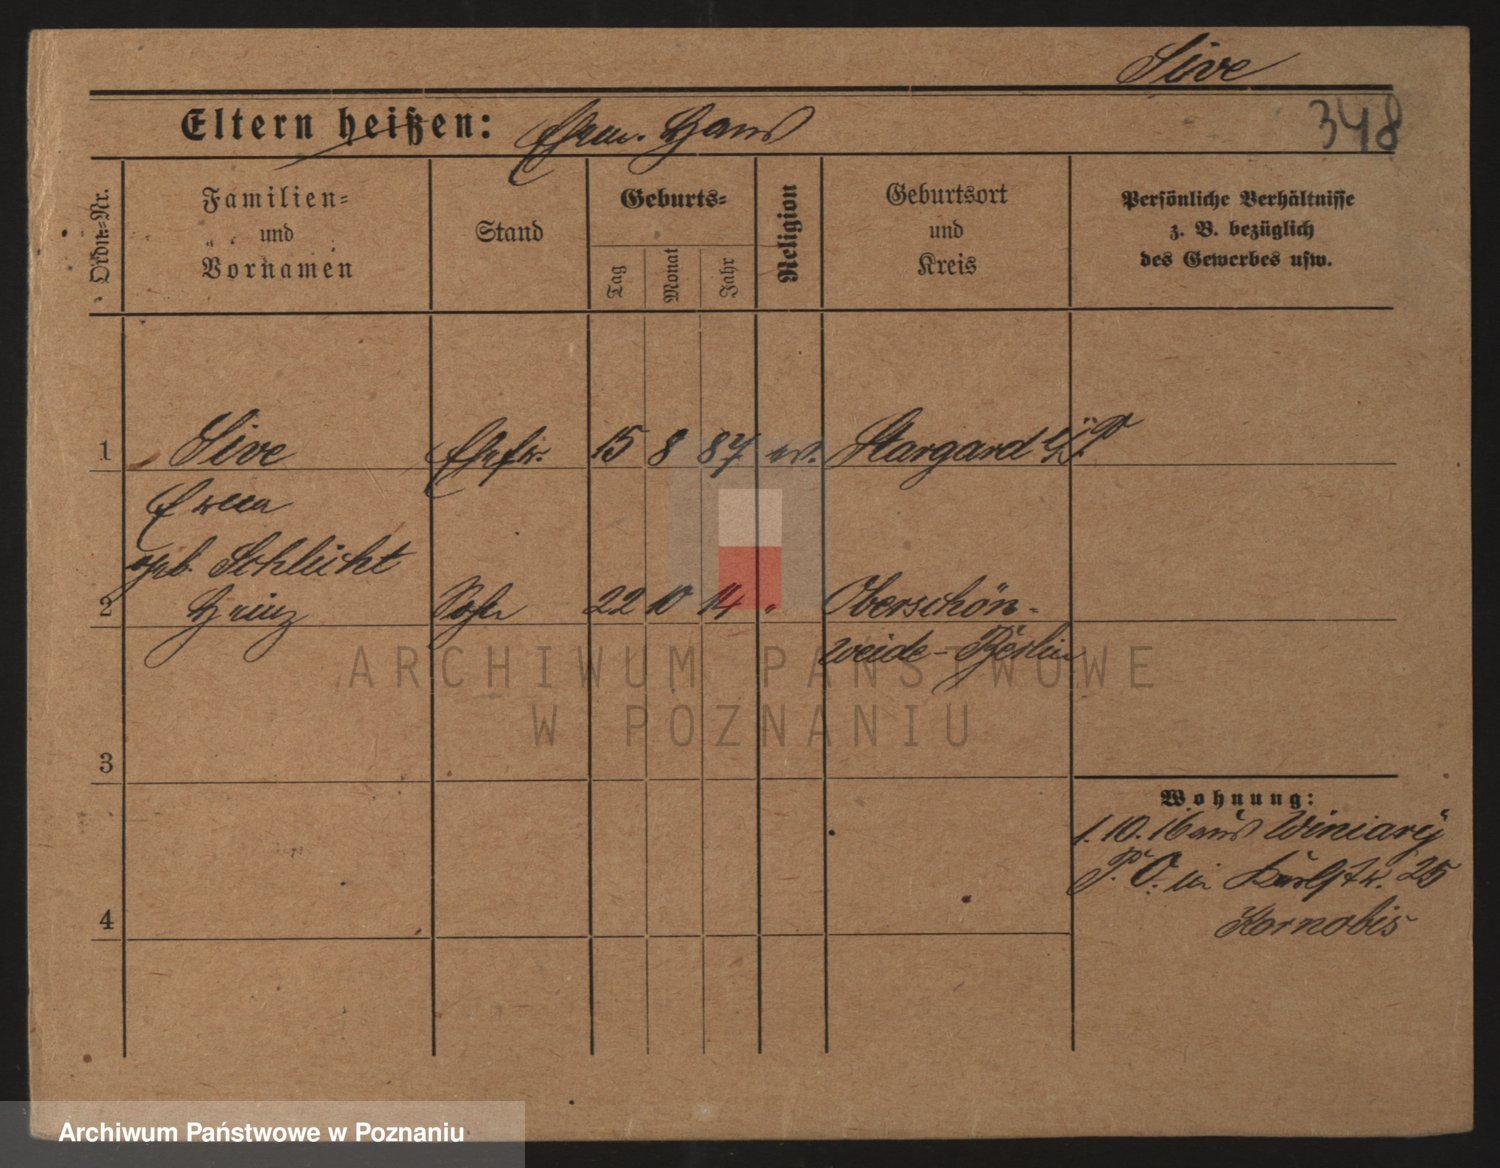 Sive
Eltern heißen: Ehem. Hans
348
Ordn.-Nr.
Familien-
und
Vornamen
Stand
Geburts-
Tag
Monat
Jahr
Religion
Geburtsort
und
Kreis
Persönliche Verhältnisse
z. B. bezüglich
des Gewerbes usw.
1 Sive Ehefr. 15 8 87 ev. Stargard
Erna
geb. Schlicht
2 Heinz Sohn 22 10 14 " Oberschön-
weide-Berlin
ARCHIWUM PAŃSTWOWE
W POZNANIU
3
Wohnung:
1. 10. 16 aus Winiary
P. O. in Karlstr. 25
Kornobis
4
Archiwum Państwowe w Poznaniu